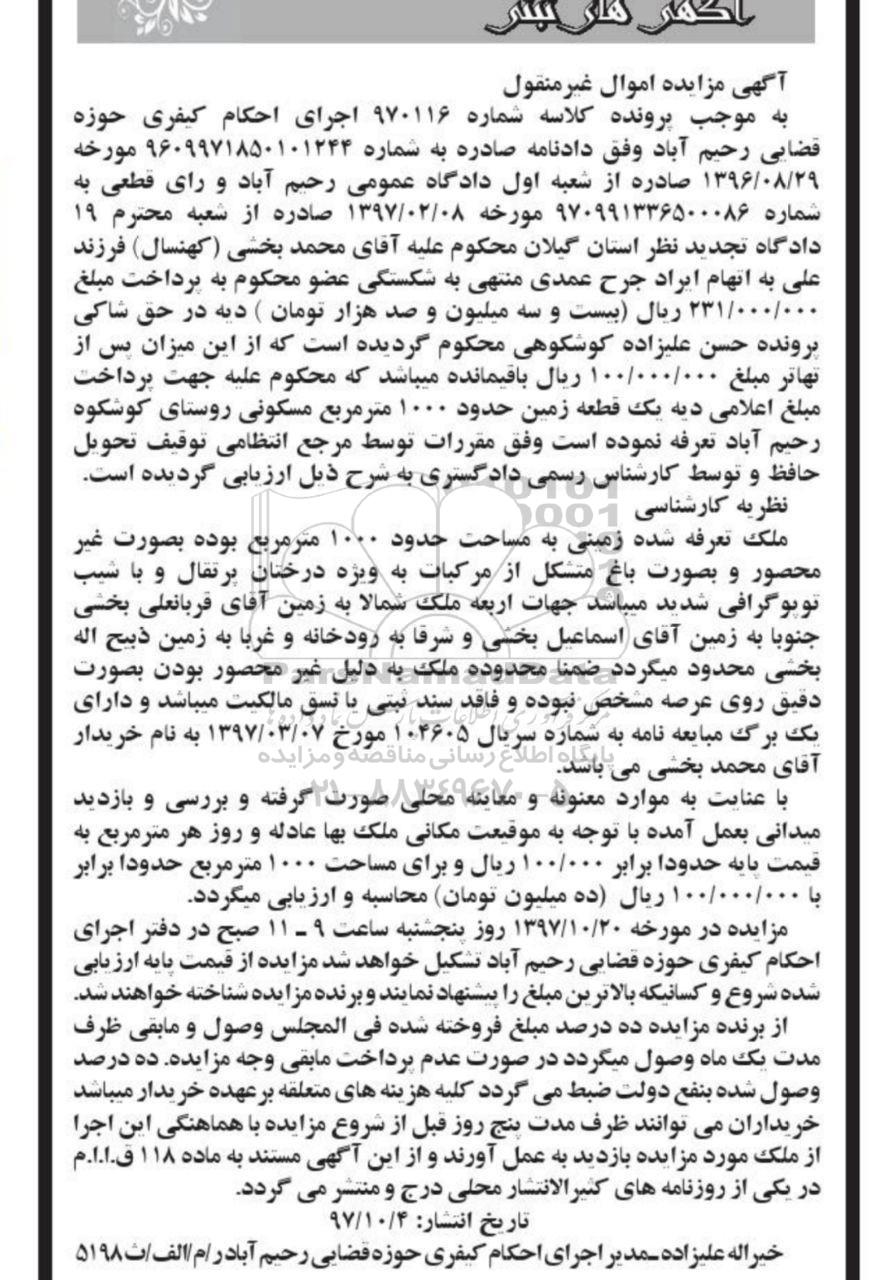 آگهی های ثبتی
آگهی مزایده اموال غیرمنقول
به موجب پرونده کلاسه شماره ۹۷۰۱۱۶ اجرای احکام کیفری حوزه
قضایی رحیم آباد وفق دادنامه صادره به شماره ۹۶۰۹۹۷۱۸۵۰۱۰۱۲۴۴ مورخه
۱۳۹۶/۰۸/۲۹ صادره از شعبه اول دادگاه عمومی رحیم آباد و رای قطعی به
شماره ۹۷۰۹۹۱۳۳۶۵۰۰۰۸۶ مورخه ۱۳۹۷/۰۲/۰۸ صادره از شعبه محترم ۱۹
دادگاه تجدید نظر استان گیلان محکوم علیه آقای محمد بخشی (کهنسال) فرزند
علی به اتهام ایراد جرح عمدی منتهی به شکستگی عضو محکوم به پرداخت مبلغ
۲۳۱/۰۰۰/۰۰۰ ریال (بیست و سه میلیون و صد هزار تومان ) دیه در حق شاکی
پرونده حسن علیزاده کوشکوهی محکوم گردیده است که از این میزان پس از
تهاتر مبلغ ۱۰۰/۰۰۰/۰۰۰ ریال باقیمانده میباشد که محکوم علیه جهت پرداخت
مبلغ اعلامی دیه یک قطعه زمین حدود ۱۰۰۰ مترمربع مسکونی روستای کوشکوه
رحیم آباد تعرفه نموده است وفق مقررات توسط مرجع انتظامی توقیف تحویل
حافظ و توسط کارشناس رسمی دادگستری به شرح ذیل ارزیابی گردیده است.
نظریه کارشناسی
ملک تعرفه شده زمینی به مساحت حدود ۱۰۰۰ مترمربع بوده بصورت غیر
محصور و بصورت باغ متشکل از مرکبات به ویژه درختان پرتقال و با شیب
توپوگرافی شدید میباشد جهات اربعه ملک شمالا به زمین آقای قربانعلی بخشی
جنوبا به زمین آقای اسماعیل بخشی و شرقا به رودخانه و غربا به زمین ذبیح اله
بخشی محدود میگردد ضمنا محدوده ملک به دلیل غیر محصور بودن بصورت
دقیق روی عرصه مشخص نبوده و فاقد سند ثبتی یا نسق مالکیت میباشد و دارای
یک برگ مبایعه نامه به شماره سریال ۱۰۴۶۰۵ مورخ ۱۳۹۷/۰۳/۰۷ به نام خریدار
آقای محمد بخشی می باشد.
با عنایت به موارد معنونه و معاینه محلی صورت گرفته و بررسی و بازدید
میدانی بعمل آمده با توجه به موقیعت مکانی ملک بها عادله و روز هر مترمربع به
قیمت پایه حدودا برابر ۱۰۰/۰۰۰ ریال و برای مساحت ۱۰۰۰ مترمربع حدودا برابر
با ۱۰۰/۰۰۰/۰۰۰ ریال (ده میلیون تومان) محاسبه و ارزیابی میگردد.
مزایده در مورخه ۱۳۹۷/۱۰/۲۰ روز پنجشنبه ساعت ۹ ـ ۱۱ صبح در دفتر اجرای
احکام کیفری حوزه قضایی رحیم آباد تشکیل خواهد شد مزایده از قیمت پایه ارزیابی
شده شروع و کسانیکه بالاترین مبلغ را پیشنهاد نمایند و برنده مزایده شناخته خواهند شد.
از برنده مزایده ده درصد مبلغ فروخته شده فی المجلس وصول و مابقی ظرف
مدت یک ماه وصول میگردد در صورت عدم پرداخت مابقی وجه مزایده. ده درصد
وصول شده بنفع دولت ضبط می گردد کلیه هزینه های متعلقه برعهده خریدار میباشد
خریداران می توانند ظرف مدت پنج روز قبل از شروع مزایده با هماهنگی این اجرا
از ملک مورد مزایده بازدید به عمل آورند و از این آگهی مستند به ماده ۱۱۸ ق.ا.ا.م
در یکی از روزنامه های کثیرالانتشار محلی درج و منتشر می گردد.
تاریخ انتشار: ۹۷/۱۰/۴
خیراله علیزاده ـ مدیر اجرای احکام کیفری حوزه قضایی رحیم آباد ر/م/الف/ث ۵۱۹۸
ParsNamadData
پایگاه اطلاع رسانی مناقصه و مزایده
۰۲۱-۸۸۳۴۹۶۷۰-۵